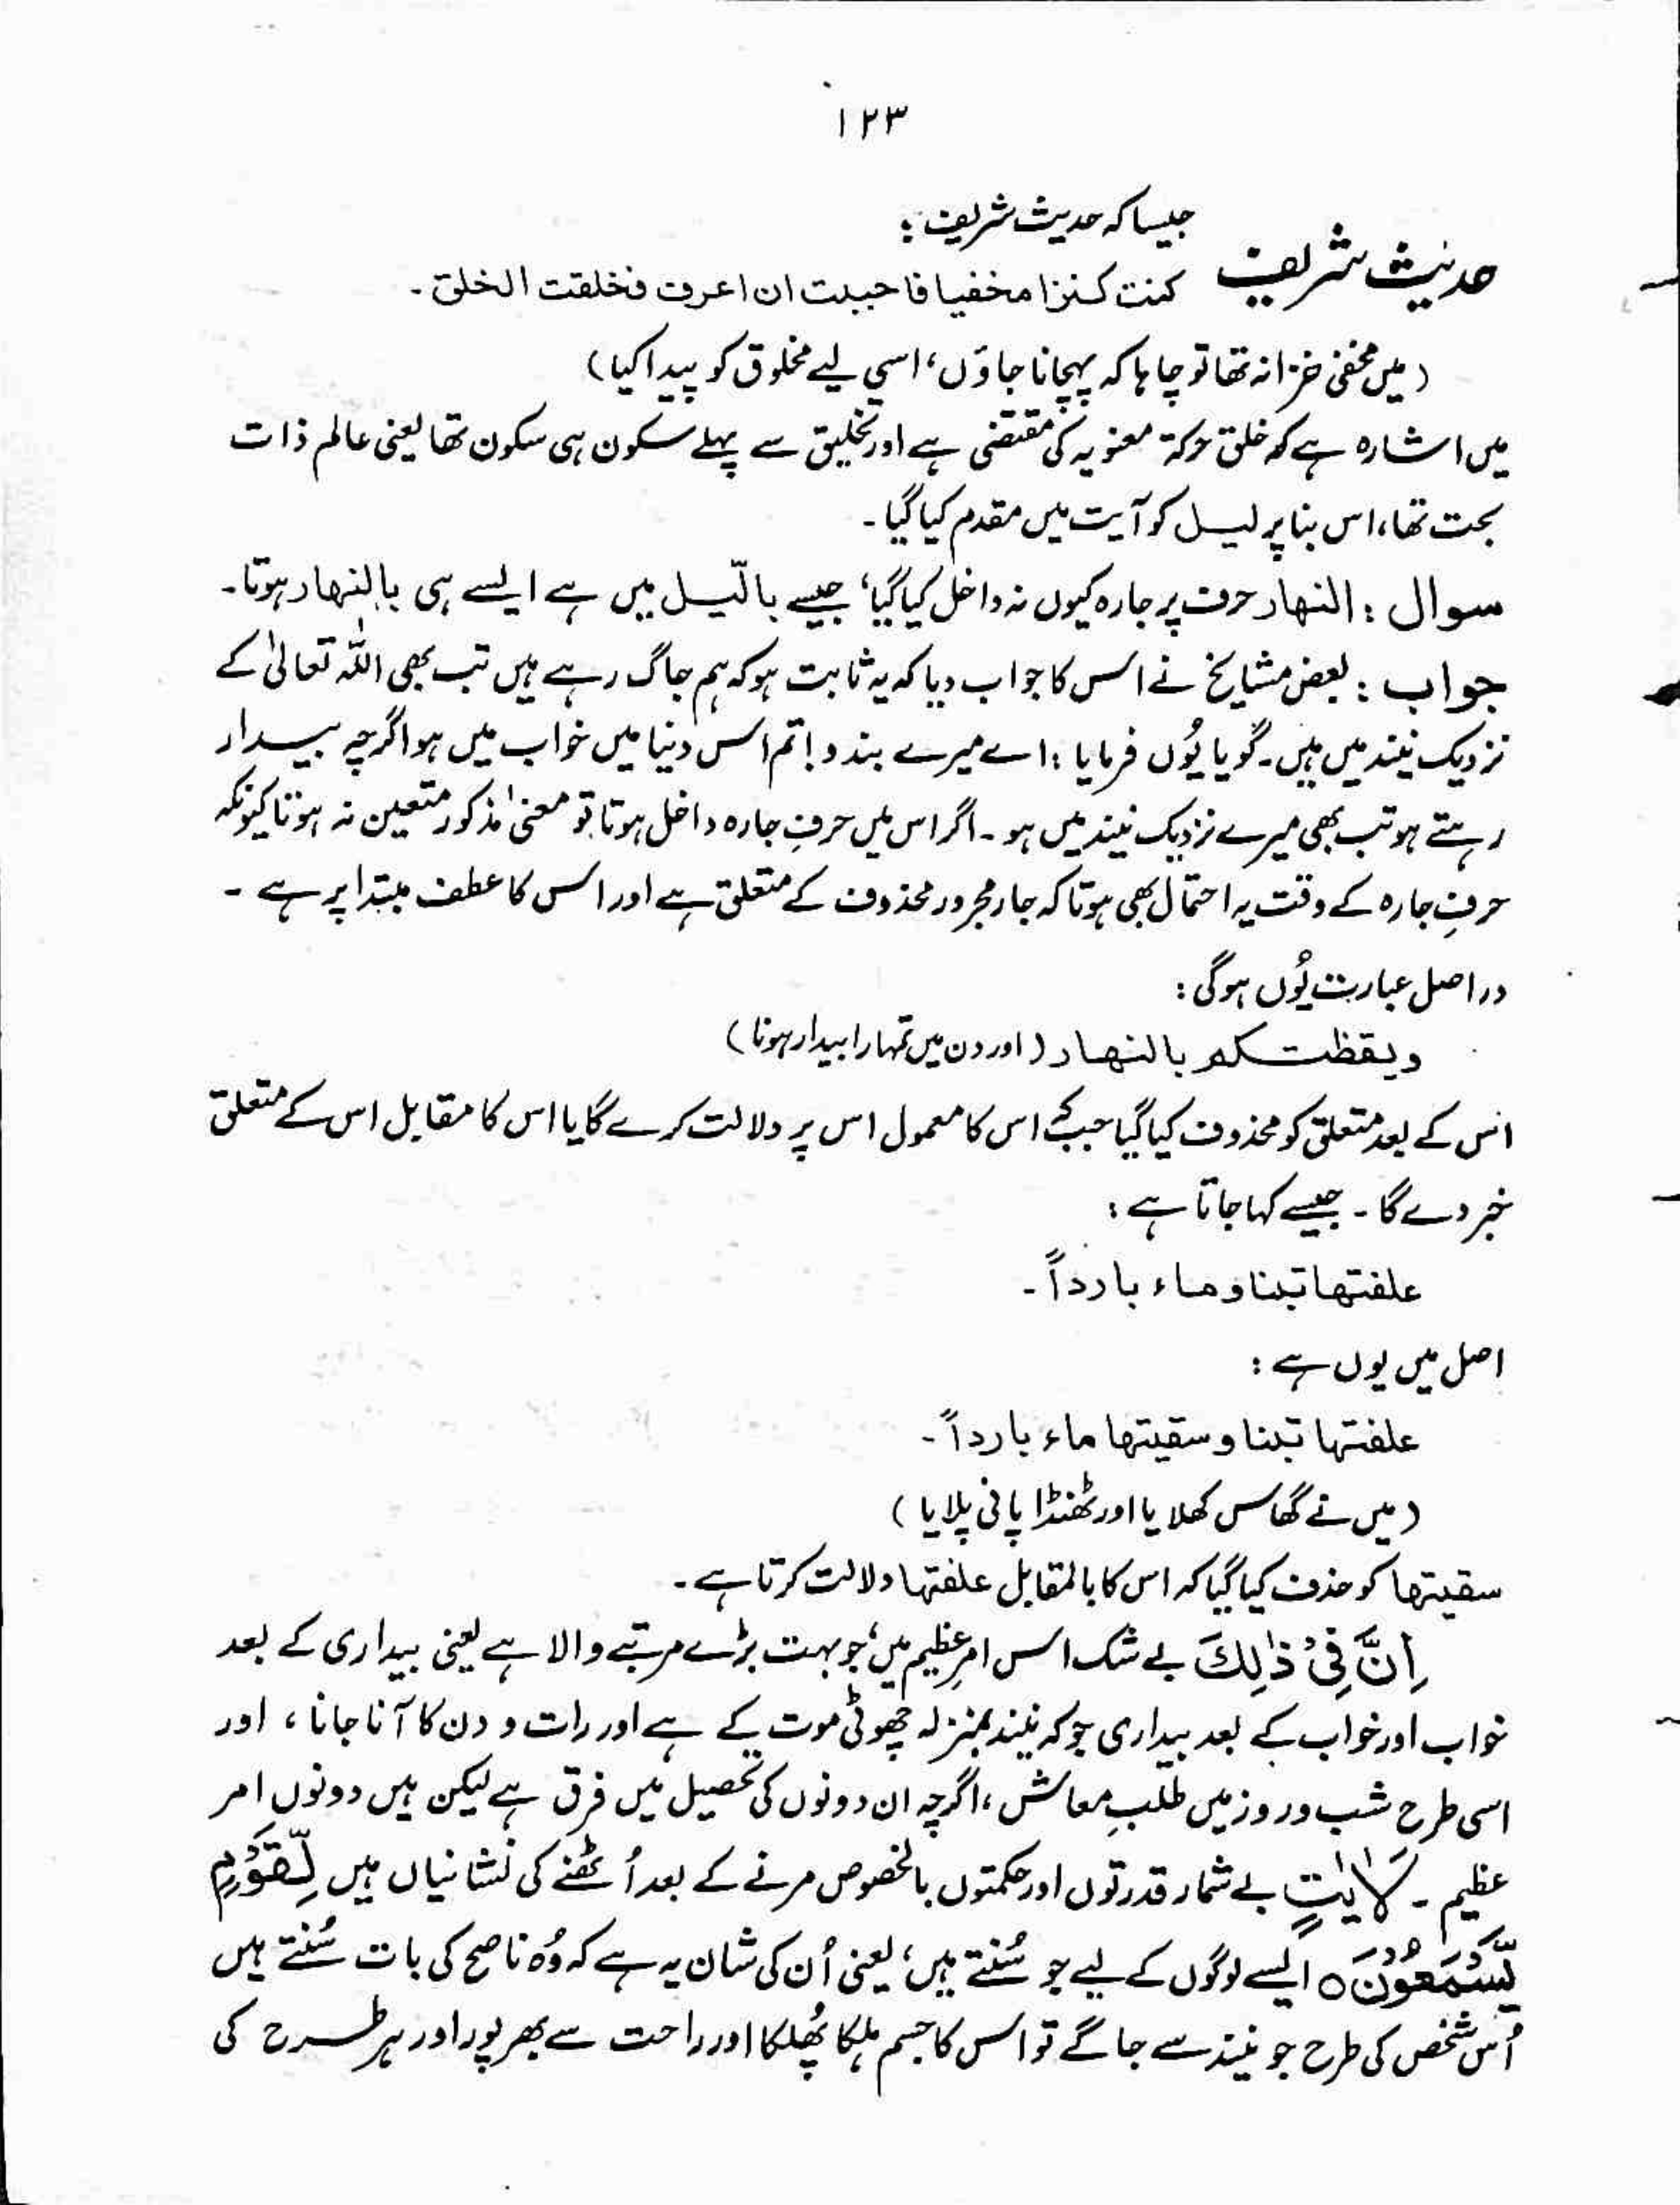 ۱۲۳
جیسا کہ حدیث شریف :
حدیث شریف کنت کنزا مخفیا فاحببت ان اعرف فخلقت الخلق ۔
(میں مخفی خزانہ تھا تو چاہا کہ پہچانا جاؤں، اسی لیے مخلوق کو پیدا کیا)
میں اشارہ ہے کہ خلق حرکۃ معنویہ کی مقتضی ہے اور تخلیق سے پہلے سکون ہی سکون تھا یعنی عالم ذات
بحت تھا، اس بنا پر لیل کو آیت میں مقدم کیا گیا ۔
سوال : النھار حرف پر جارہ کیوں نہ داخل کیا گیا، جیسے بالّیل میں ہے ایسے ہی بالنھار ہوتا۔
جواب : بعض مشایخ نے اس کا جواب دیا کہ یہ ثابت ہو کہ ہم جاگ رہے ہیں تب بھی اللہ تعالیٰ کے
نزدیک نیند میں ہیں ۔ گویا یُوں فرمایا : اے میرے بندو! تم اس دنیا میں خواب میں ہو اگرچہ بیدار
رہتے ہو تب بھی میرے نزدیک نیند میں ہو ۔ اگر اس میں حرفِ جارہ داخل ہوتا تو معنیٰ مذکور متعین نہ ہوتا کیونکہ
حرفِ جارہ کے وقت یہ احتمال بھی ہوتا کہ جار مجرور محذوف کے متعلق ہے اور اس کا عطف مبتدا پر ہے ۔
دراصل عبارت یُوں ہوگی :
ویقظتکم بالنھار (اور دن میں تمہارا بیدار ہونا)
اس کے بعد متعلق کو محذوف کیا گیا جبکہ اس کا معمول اس پر دلالت کرے گا یا اس کا مقابل اس کے متعلق
خبر دے گا ۔ جیسے کہا جاتا ہے :
علفتھا تبنا و ماء بارداً ۔
اصل میں یوں ہے :
علفتہا تبنا و سقیتھا ماء بارداً ۔
(میں نے گھاس کھلایا اور ٹھنڈا پانی پلایا)
سقیتھا کو حذف کیا گیا کہ اس کا بالمقابل علفتہا دلالت کرتا ہے ۔
اِنَّ فِیْ ذٰلِكَ بے شک اس امرِ عظیم میں، جو بہت بڑے مرتبے والا ہے یعنی بیداری کے بعد
خواب اور خواب کے بعد بیداری جو کہ نیند بمنزلہ چھوٹی موت کے ہے اور رات و دن کا آنا جانا ، اور
اسی طرح شب و روز میں طلبِ معاش ، اگرچہ ان دونوں کی تحصیل میں فرق ہے لیکن ہیں دونوں امر
عظیم ۔ لَاٰیٰتٍ بے شمار قدرتوں اور حکمتوں بالخصوص مرنے کے بعد اُٹھنے کی نشانیاں ہیں لِّقَوْمٍ
یَّسْمَعُوْنَ ○ ایسے لوگوں کے لیے جو سُنتے ہیں، یعنی اُن کی شان یہ ہے کہ وُہ ناصح کی بات سُنتے ہیں
اُس شخص کی طرح جو نیند سے جاگے تو اس کا جسم ہلکا پُھلکا اور راحت سے بھرپور اور ہر طرح کی